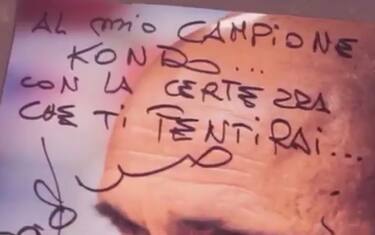 AL mio CAMPIONE
KONDO...
CON LA CERTEZZA
CHE TI PENTIRAI...